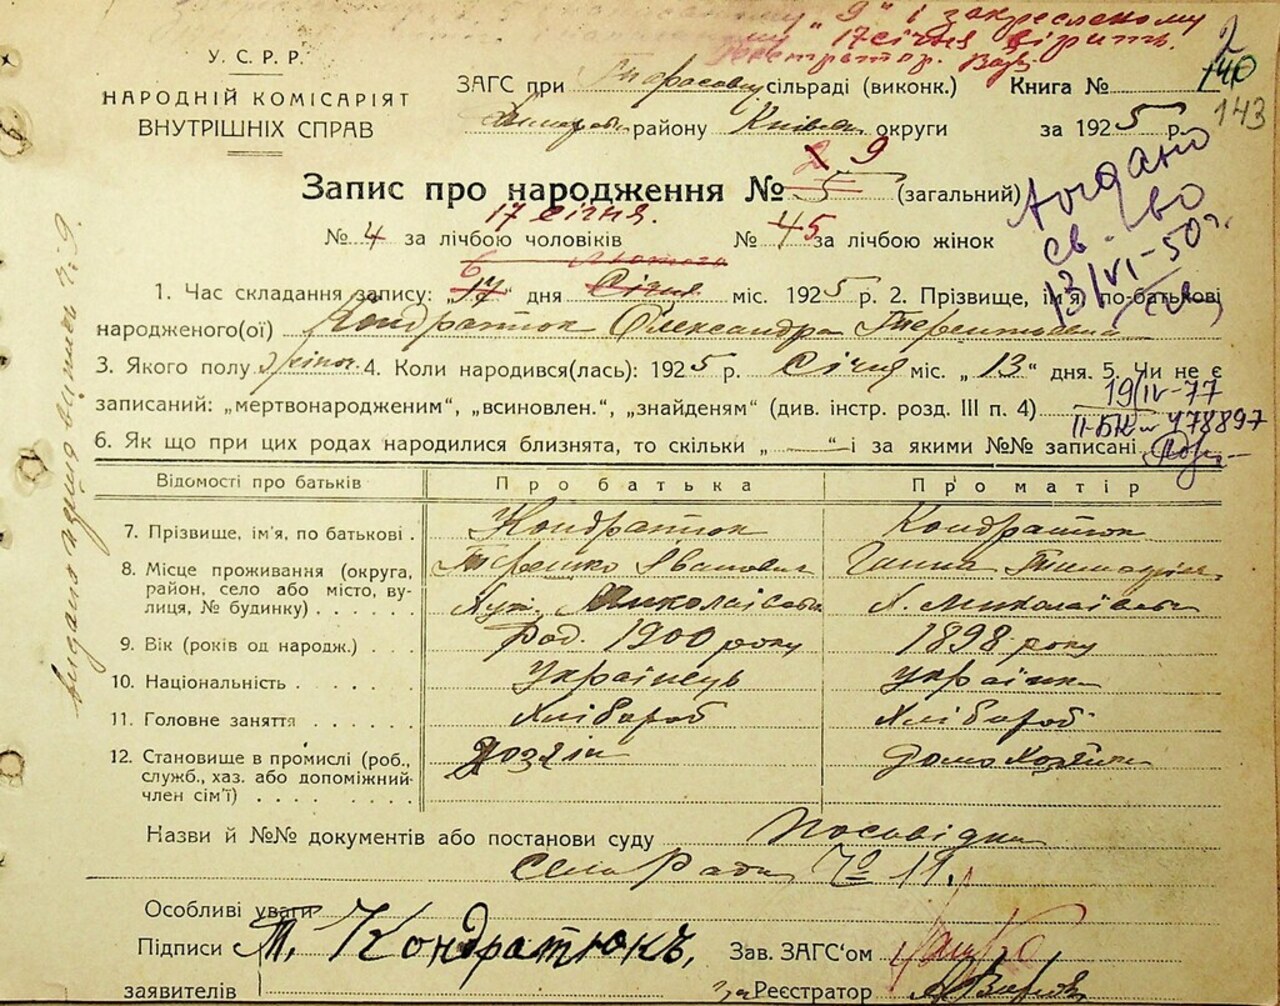 "9" і закресленому
17 січня вірить.
У.С.Р.Р.
НАРОДНІЙ КОМІСАРІЯТ
ВНУТРІШНІХ СПРАВ
ЗАГС при Тарасовец сільраді (виконк.) Книга № 2 140
143
району Київськ округи за 1925 р.
Запис про народження № 5 2 9 (загальний)
17 січня.
№ 4 за лічбою чоловіків № 45 за лічбою жінок
6 Лютого
1. Час складання запису: „17" дня Січня міс. 1925 р. 2. Прізвище, ім'я, по-батькові
народженого(ої) Кондратюк Олександра Терентьевна
3. Якого полу жіноч. 4. Коли народився(лась): 1925 р. Січня міс. „13" дня. 5. Чи не є
записаний: „мертвонародженим", „всиновлен.", „знайденям" (див. інстр. розд. III п. 4)
6. Як що при цих родах народилися близнята, то скільки „——"—і за якими №№ записані
св-во
13/VI-50 г.
19/IV-77
II-БК № 478897
Відомості про батьків Про батька Про матір
7. Прізвище, ім'я, по батькові . Кондратюк Кондратюк
Терешко Іванович Ганна
8. Місце проживання (округа, район, село або місто, вулиця, № будинку) . . . . . Хут. Миколаівськ Х. Миколаївськ
9. Вік (років од народж.) . . . Род. 1900 року 1898 року
10. Національність . . . . . . Українець Українк
11. Головне заняття . . . . . . Хлібороб Хлібороб
12. Становище в промислі (роб., служб., хаз. або допоміжний-член сім'ї) . . . . . . . Хозяін
Назви й №№ документів або постанови суду Посвідка
Сель Ради № 11.
Особливі уваги
Підписи Т. Кондратюкъ, Зав. ЗАГС'ом
заявителів за Реєстратор